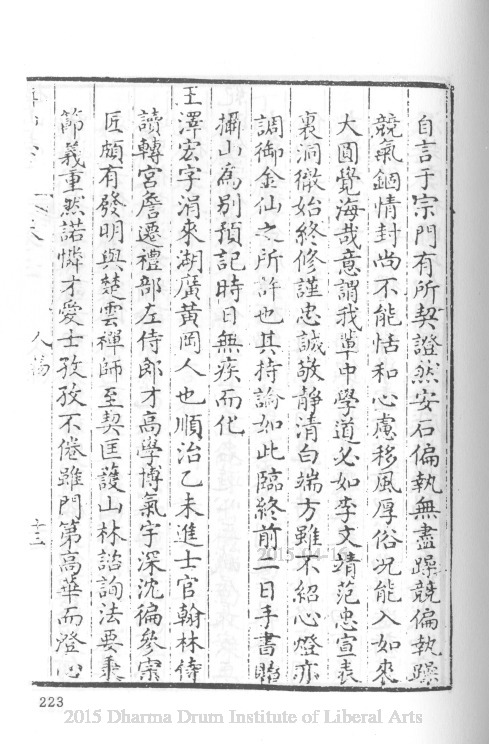 自言于宗門有所契證然安石偏執無盡躁競偏執躁
競氣錮情封尚不能恬和心慮移風厚俗况能入如來
大圓覺海哉意謂我輩中學道必如李文靖范忠宣表
裏洞徹始終修謹忠誠敬静清白端方雖不紹心燈亦
調御金仙之所許也其持論如此臨終前一日手書
攝山為別預記時日無疾而化
王澤宏字涓來湖廣黄岡人也順治乙未進士官翰林侍
讀轉宮詹遷禮部左侍郎才高學博氣宇深沈徧參宗
匠頗有發明與楚雲禪師至契匡護山林諮詢法要秉
節義重然諾憐才愛士孜孜不倦雖門第高華而澄心
223
2015 Dharma Drum Institute of Liberal Arts